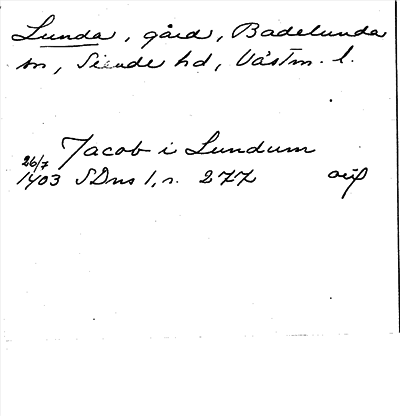 Lunda, gård, Badelunda
sn, Siende hd, Västm. l.
Jacob i Lundum
26/7
1403 SDns 1, n. 277 orig